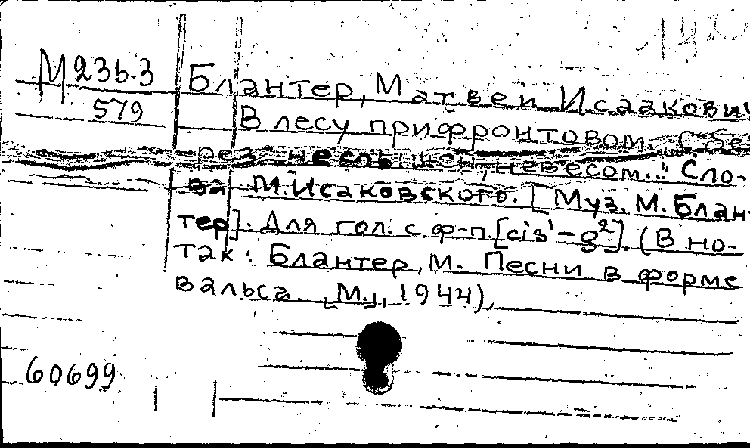 М 236.3
579
Блантер, Матвей Исаакович
В лесу прифронтовом. "С бе-
рез неслышен, невесом..." Сло-
ва М. Исаковского. [Муз. М. Блан-
тер]. Для гол. с ф-п. [cis¹-g²]. (В но-
тах: Блантер, М. Песни в форме
вальса. М., 1944),
60699